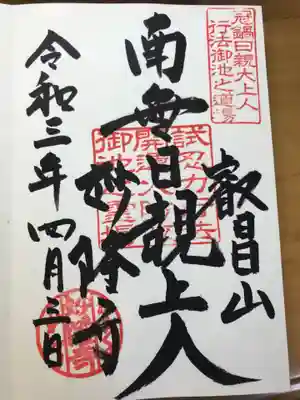 冠鍋日親大上人
行法御池之道場
叡昌山
南無日親上人
妙隆寺
令和三年四月三日